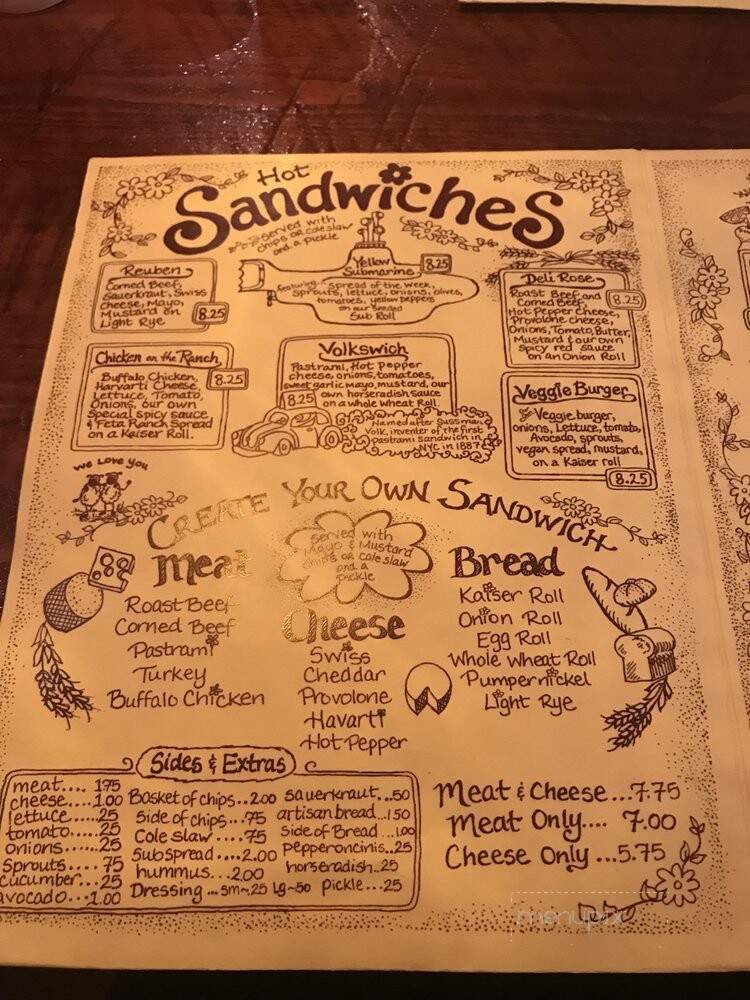 Hot
Sandwiches
served with
chips or coleslaw
and a pickle
Reuben
Corned Beef,
Sauerkraut, Swiss
cheese, Mayo,
Mustard on
Light Rye
8.25
Yellow
Submarine
8.25
featuring... spread of the week,
sprouts, lettuce, onions, olives,
tomatoes, yellow peppers
on our seeded
Sub Roll
Deli Rose
Roast Beef and
Corned Beef,
8.25
Hot Pepper Cheese,
Provolone cheese,
Onions, Tomato, Butter,
Mustard & our own
spicy red sauce
on an Onion Roll
Chicken on the Ranch
Buffalo Chicken,
Harvarti Cheese,
8.25
Lettuce, Tomato,
Onions, our own
special spicy sauce
& Feta Ranch Spread
on a Kaiser Roll.
Volkswich
Pastrami, Hot Pepper
cheese, onions, tomatoes,
sweet garlic mayo, mustard, our
8.25
own horseradish sauce
on a whole wheat Roll.
Named after Sussman
Volk, inventer of the first
pastrami sandwich in
NYC in 1887
Veggie Burger
Veggie burger,
onions, Lettuce, tomato,
Avocado, sprouts,
vegan spread, mustard,
on a Kaiser roll
8.25
we Love you
Create Your Own Sandwich
served with
Mayo & Mustard
chips or coleslaw
and a
pickle
Meat
Roast Beef
Corned Beef
Pastrami
Turkey
Buffalo Chicken
Cheese
Swiss
Cheddar
Provolone
Havarti
Hot Pepper
Bread
Kaiser Roll
Onion Roll
Egg Roll
Whole Wheat Roll
Pumpernickel
Light Rye
Sides & Extras
meat.... 1.75
cheese....1.00
lettuce.....25
tomato.....25
onions......25
sprouts.... 75
cucumber...25
avocado...1.00
Basket of chips..2.00
side of chips...75
Cole slaw ....75
subspread....2.00
hummus...2.00
Dressing...sm~.25 Lg~50
sauerkraut...50
artisan bread...1.50
Side of Bread ..1.00
pepperoncinis..25
horseradish..25
pickle...25
Meat & Cheese...7.75
Meat Only.... 7.00
Cheese Only ...5.75
menupix